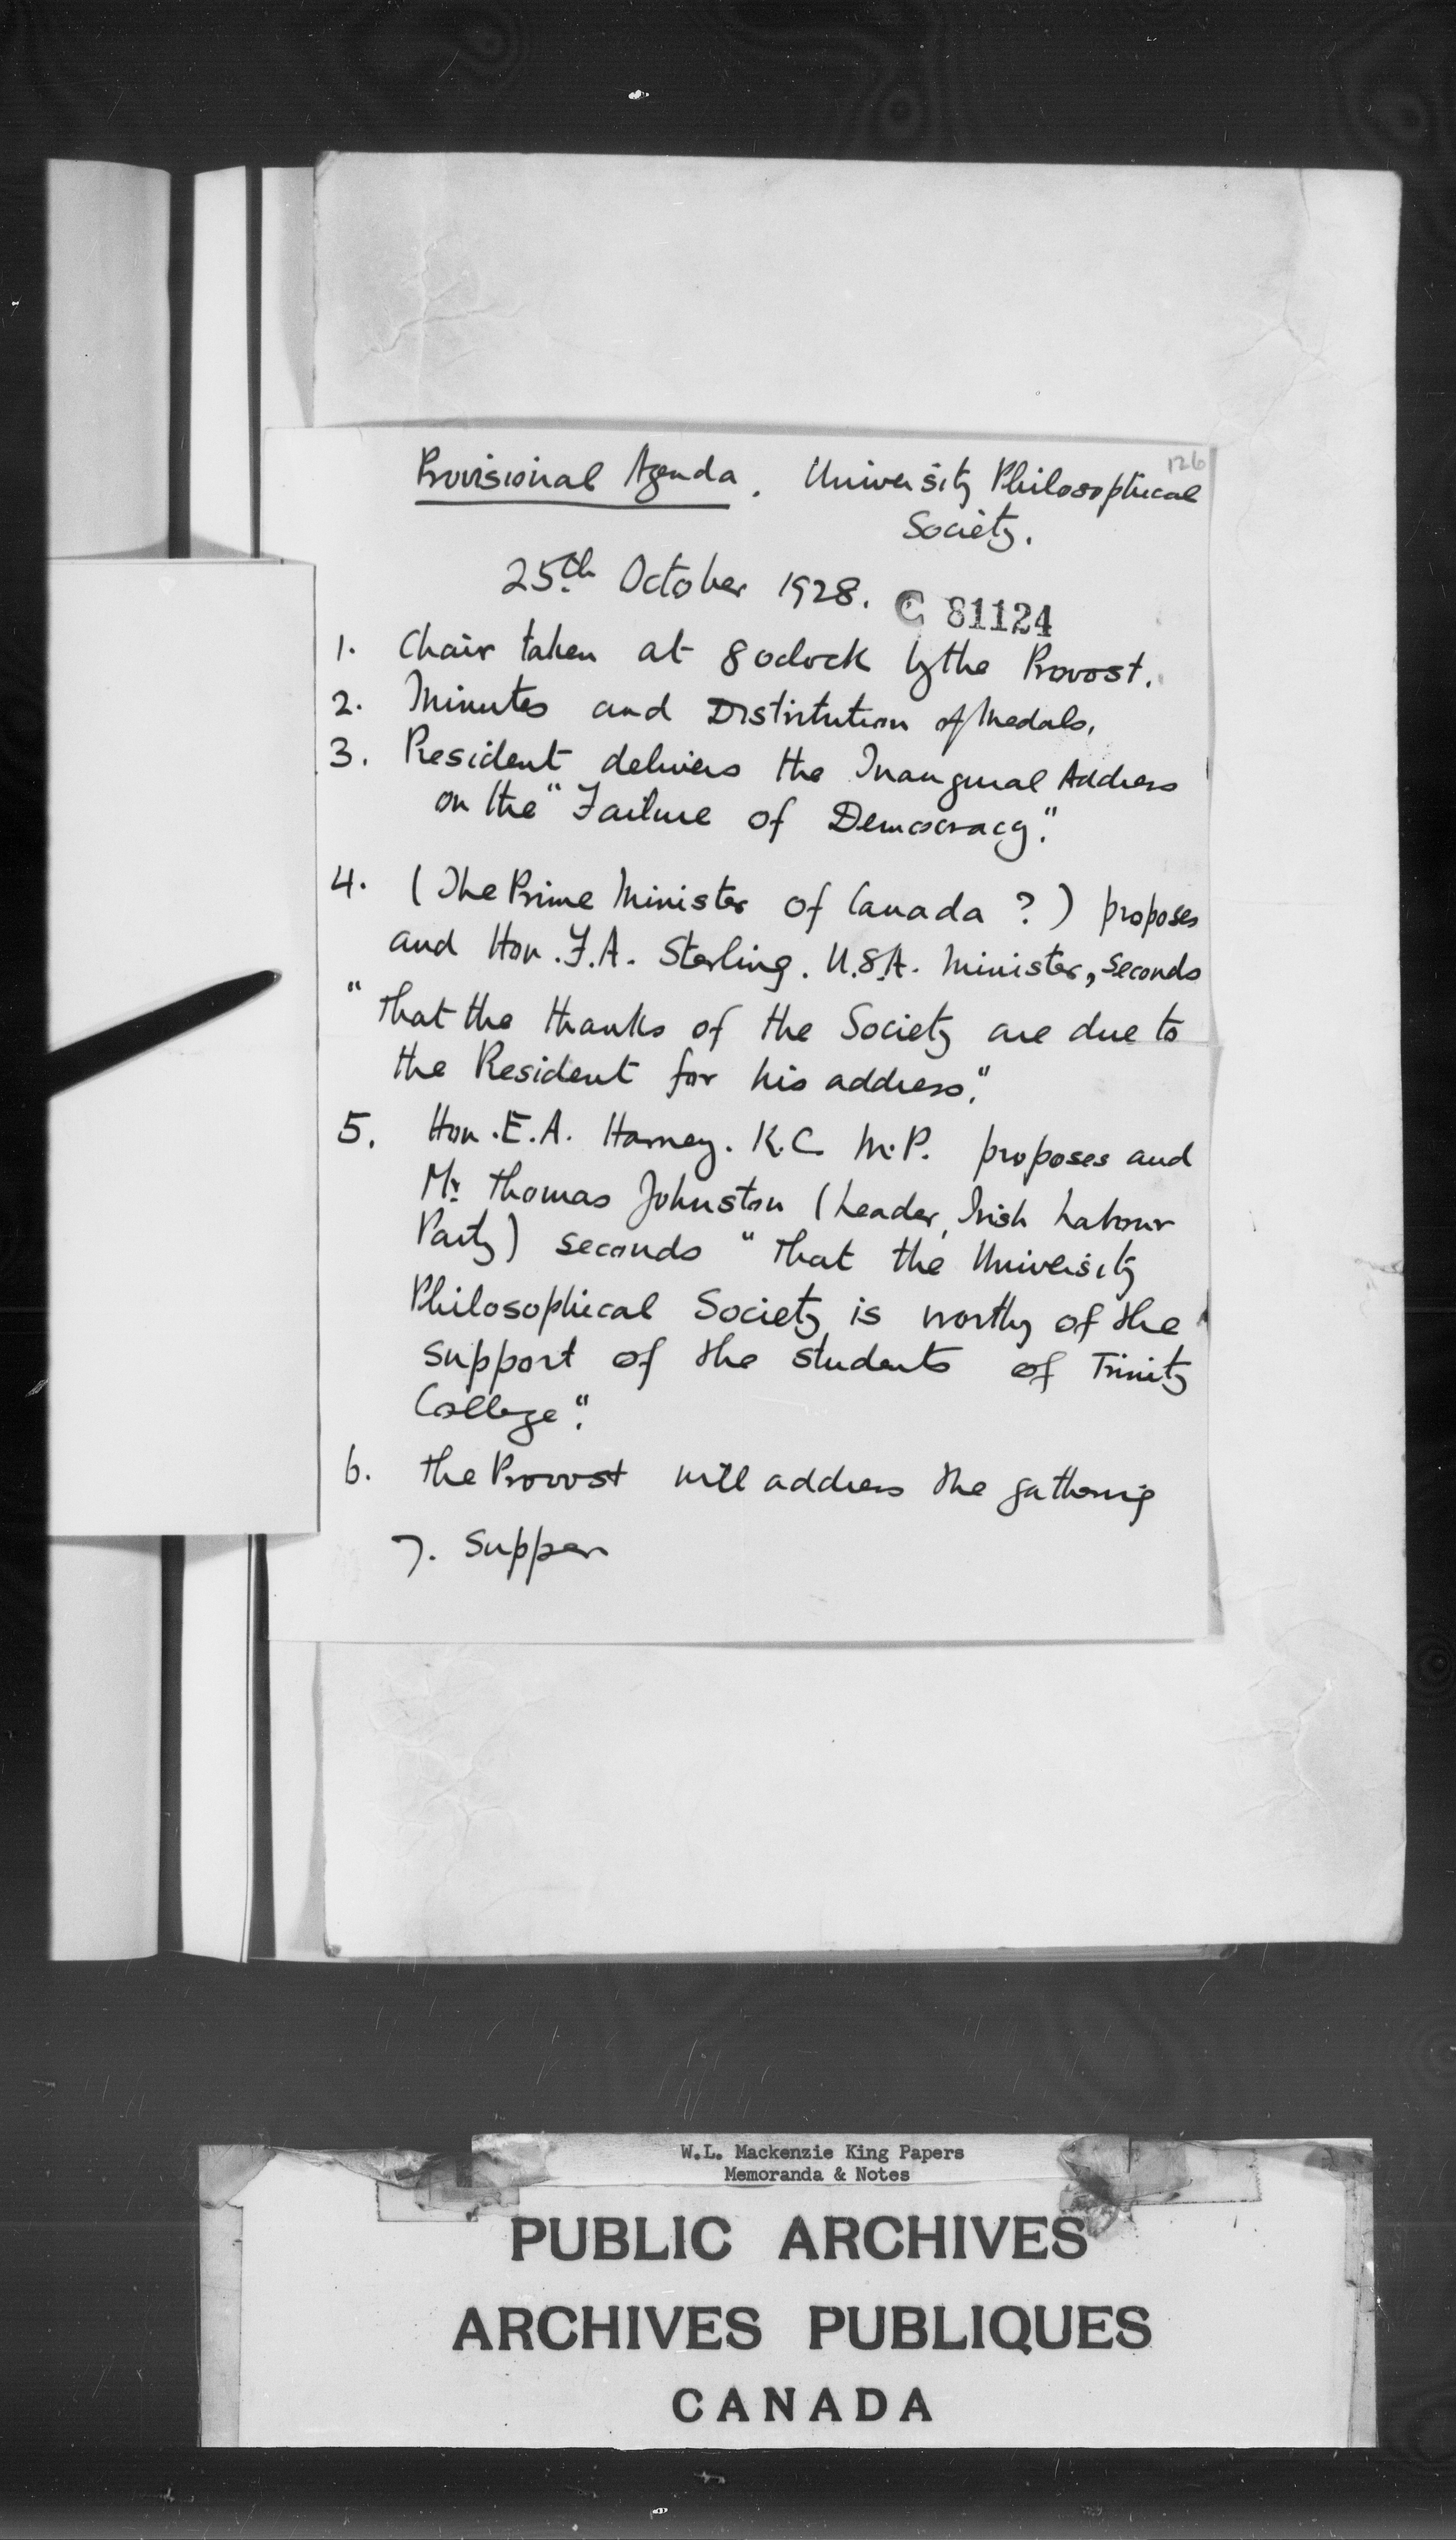 126
Provisional Agenda. University Philosophical
Society.
25th October 1928. C 81124
1. Chair taken at 8 oclock by the Provost.
2. Minutes and Distribution of Medals.
3. President delivers the Inaugural Address
on the "Failure of Democracy."
4. (The Prime Minister of Canada ?) proposes
and Hon. F.A. Sterling. U.S.A. Minister, seconds
"that the thanks of the Society are due to
the President for his address."
5. Hon. E.A. Harney. K.C. M.P. proposes and
Mr. Thomas Johnston (Leader, Irish Labour
Party) seconds "that the University
Philosophical Society is worthy of the
support of the students of Trinity
College".
6. The Provost will address the gathering
7. Supper
W.L. Mackenzie King Papers
Memoranda & Notes
PUBLIC ARCHIVES
ARCHIVES PUBLIQUES
CANADA